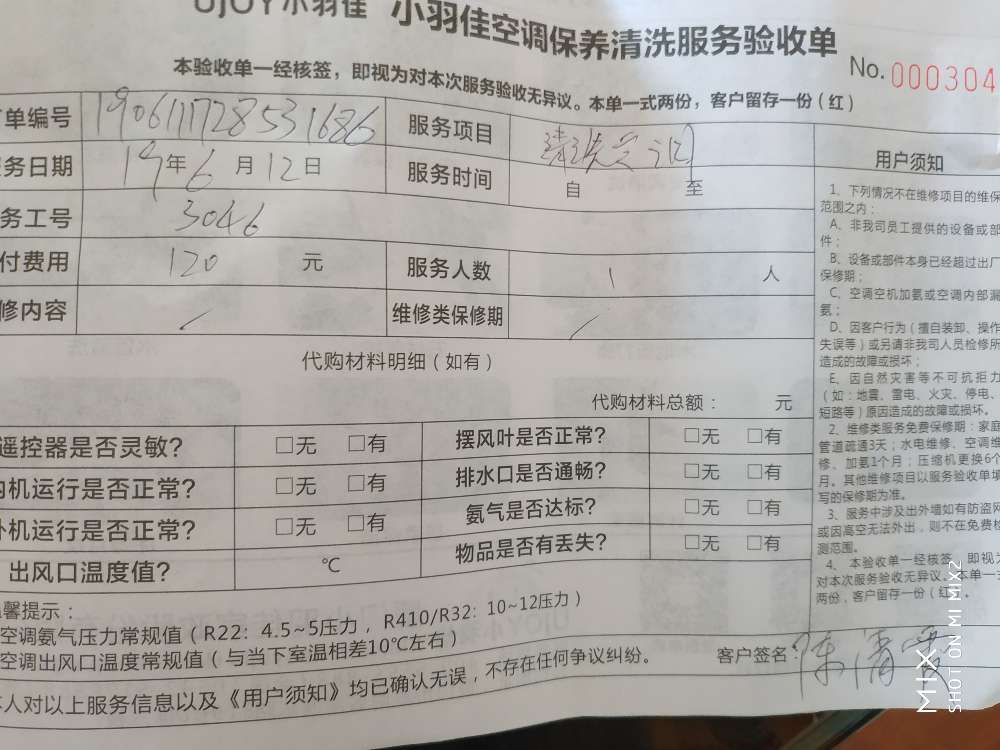 UJOY小羽佳 小羽佳空调保养清洗服务验收单
No. 000304
本验收单一经核签，即视为对本次服务验收无异议。本单一式两份，客户留存一份（红）
单编号 1906111728531686 服务项目 清洗空调
务日期 19年6月12日 服务时间 自 至
务工号 3046
付费用 120 元 服务人数 1 人
修内容 / 维修类保修期 /
代购材料明细（如有）
代购材料总额： 元
遥控器是否灵敏? □无 □有 摆风叶是否正常? □无 □有
机运行是否正常? □无 □有 排水口是否通畅? □无 □有
机运行是否正常? □无 □有 氨气是否达标? □无 □有
出风口温度值? ℃ 物品是否有丢失? □无 □有
馨提示：
空调氨气压力常规值（R22：4.5~5压力，R410/R32：10~12压力）
空调出风口温度常规值（与当下室温相差10℃左右）
人对以上服务信息以及《用户须知》均已确认无误，不存在任何争议纠纷。
客户签名：陈清
用户须知
1、下列情况不在维修项目的维保
范围之内：
A、非我司员工提供的设备或部
件；
B、设备或部件本身已经超过出厂
保修期；
C、空调空机加氨或空调内部漏
氨；
D、因客户行为（擅自装卸、操作
失误等）或另请非我司人员检修所
造成的故障或损坏；
E、因自然灾害等不可抗拒力
（如：地震、雷电、火灾、停电、
短路等）原因造成的故障或损坏。
2、维修类服务免费保修期：家庭
管道疏通3天；水电维修、空调维
修、加氨1个月；压缩机更换6个
月。其他维修项目以服务验收单填
写的保修期为准。
3、服务中涉及出外墙如有防盗网
或因高空无法外出，则不在免费检
测范围。
4、本验收单一经核签，即视为
对本次服务验收无异议。本单一式
两份，客户留存一份（红）。
MIX
SHOT ON MI MIX2